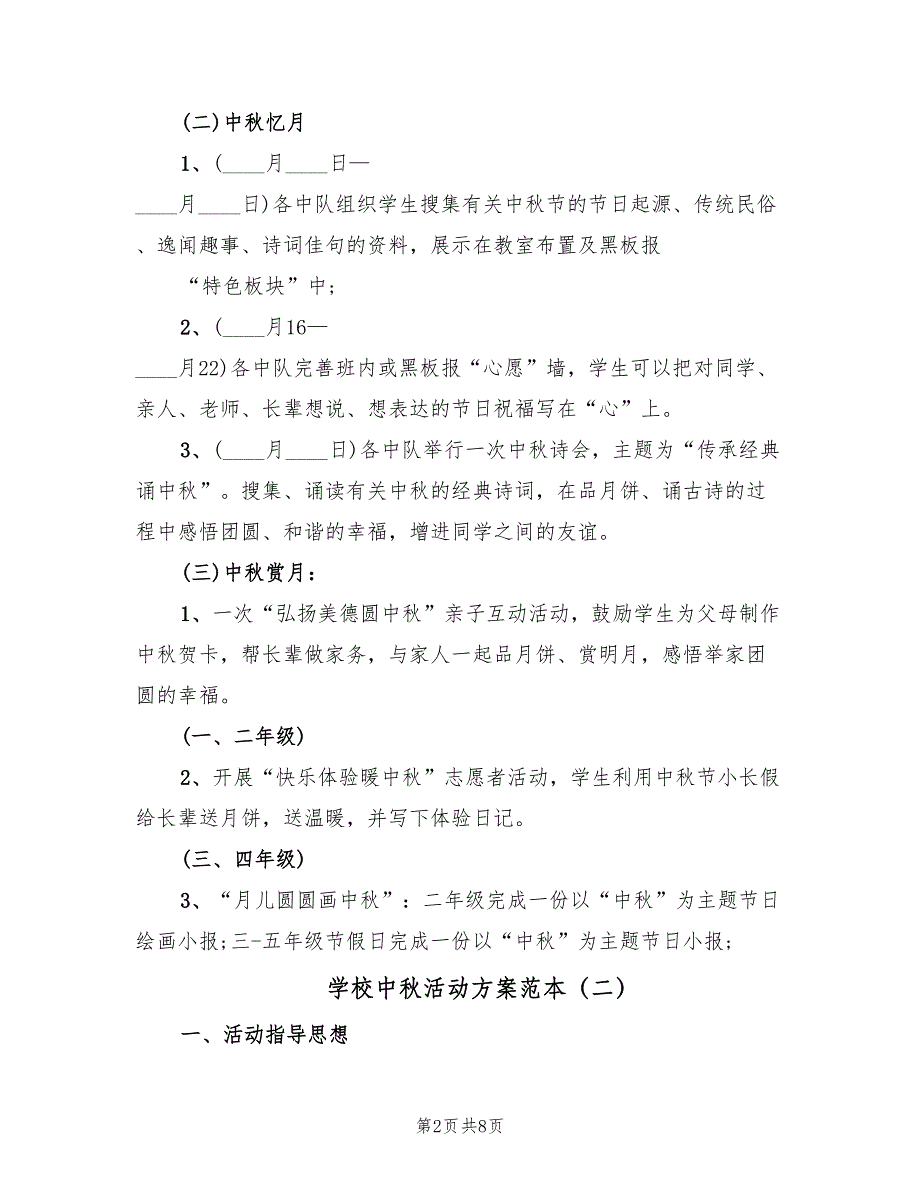 (二)中秋忆月
1、(____月____日—
____月____日)各中队组织学生搜集有关中秋节的节日起源、传统民俗
、逸闻趣事、诗词佳句的资料，展示在教室布置及黑板报
“特色板块”中;
2、(____月16—
____月22)各中队完善班内或黑板报“心愿”墙，学生可以把对同学、
亲人、老师、长辈想说、想表达的节日祝福写在“心”上。
3、(____月____日)各中队举行一次中秋诗会，主题为“传承经典
诵中秋”。搜集、诵读有关中秋的经典诗词，在品月饼、诵古诗的过
程中感悟团圆、和谐的幸福，增进同学之间的友谊。
(三)中秋赏月：
1、一次“弘扬美德圆中秋”亲子互动活动，鼓励学生为父母制作
中秋贺卡，帮长辈做家务，与家人一起品月饼、赏明月，感悟举家团
圆的幸福。
(一、二年级)
2、开展“快乐体验暖中秋”志愿者活动，学生利用中秋节小长假
给长辈送月饼，送温暖，并写下体验日记。
(三、四年级)
3、“月儿圆圆画中秋”：二年级完成一份以“中秋”为主题节日
绘画小报;三-五年级节假日完成一份以“中秋”为主题节日小报;
学校中秋活动方案范本（二）
一、活动指导思想
第2页共8页